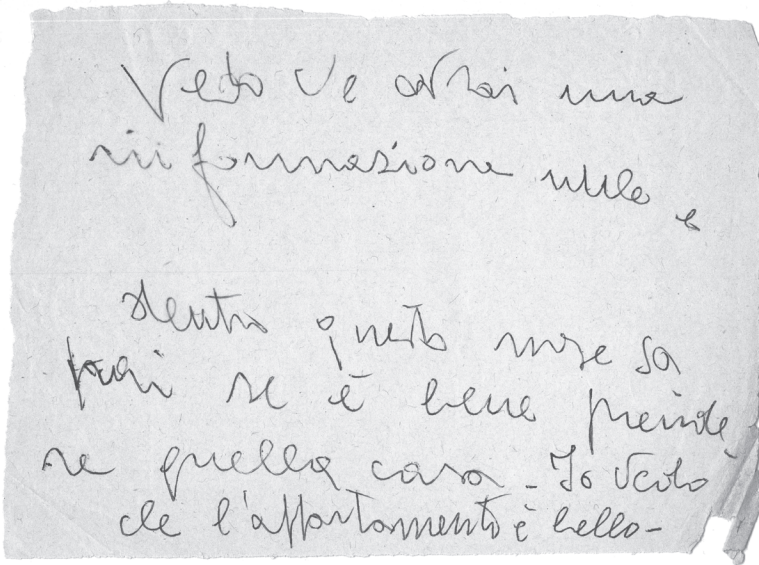 Vedo se avrai una
informazione utile e
dentro questo mese sa
prai se è bene prende
re quella casa - Io vedo
che l'appartamento è bello -